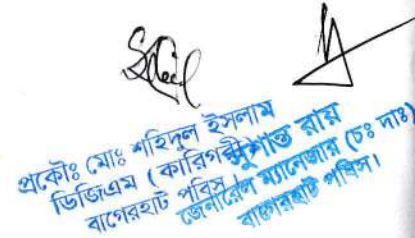 প্রকৌঃ মোঃ শহিদুল ইসলাম
ডিজিএম (কারিগরী)
বাগেরহাট পবিস।
সুশান্ত রায়
জেনারেল ম্যানেজার (চঃ দাঃ)
বাগেরহাট পবিস।